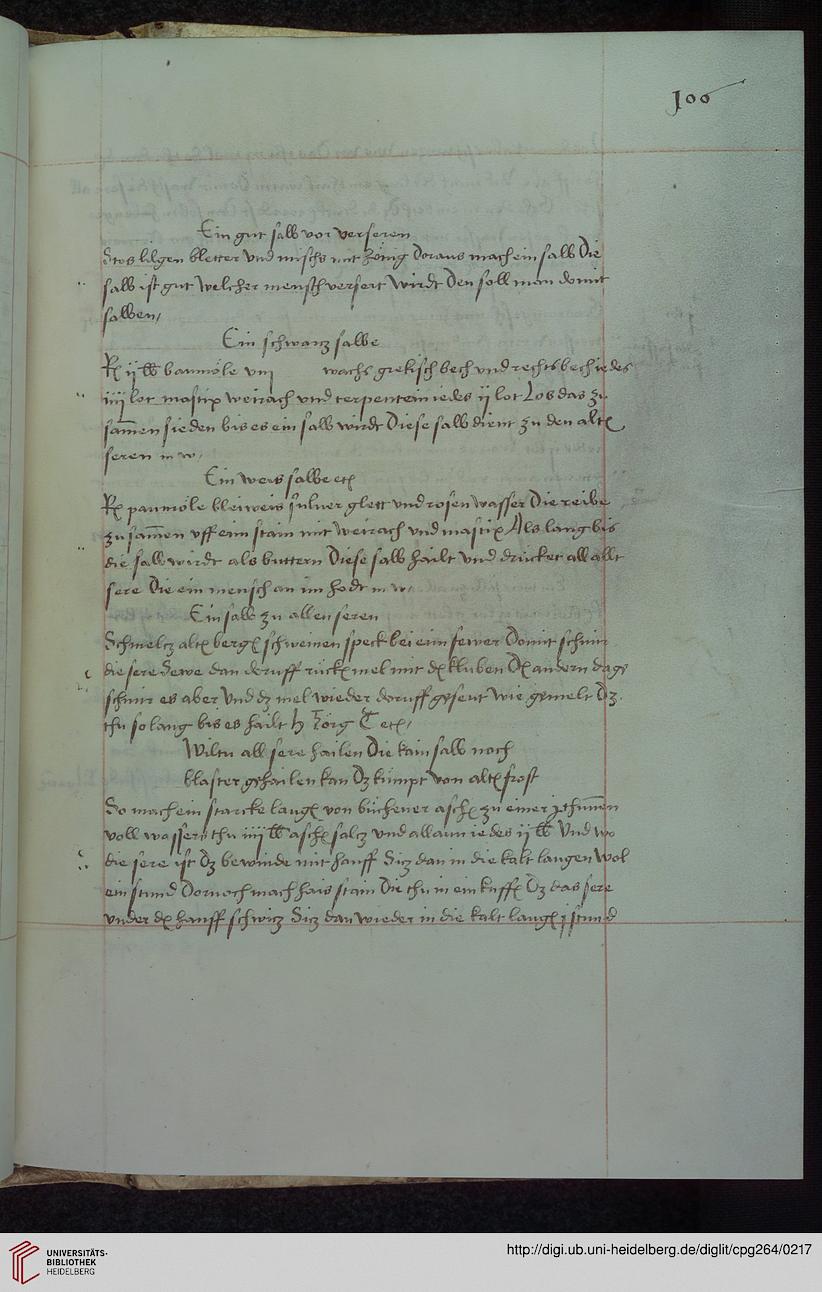 100
Ein gut salb vor verseren
Stos lilgen bletter vnd mischs mit honig Doraus mach ein salb Die
salb ist gut welcher mensch versert wirdt Den soll man domit
salben /
Ein schwarz salbe
Rx ij lb baumöle vnj wachs grekisch bech vnd rechts bech iedes
iiij lot mastix weirach vnd terpentein iedes ij lot Los das zu
samen sieden bis es ein salb wirdt Diese salb dient zu den altē
seren
Ein weis salbe etc
Rx paumöle bleiweis siluer glett vnd rosen wasser Die reibe
zu samen vff eim stain mit weirach vnd mastix Als lang bis
die salb wirdt als buttern Diese salb hailt vnd drücket all allt
sere Die ein mensch an im hodt
Ein salb zu allen seren
Schmelcz altē schweinen speck bei eim fewer Domit schmir
die sere dan doruff mel mit den andern dags
schmir es aber vnd dz mel wieder doruff geseut wie gemelt Dz
thu so lang bis es hailt
Wiltu all sere hailen Die kain salb noch
blaster gehailen kan Dz kumpt von altē frost
So mach ein starcke laugē von büchener aschē zu einer
voll wassers thu iiij lb aschē salcz vnd allaun iedes ij lb Vnd wo
die sere ist Dz bewinde mit hanff Sicz dan in die kalt laugen wol
ein stund Dornach mach hais stain Die thu in ein kuffē Dz das sere
vnder dē hanff schwicz Sicz dan wieder in die kalt laugē j stund
UNIVERSITÄTS-
BIBLIOTHEK
HEIDELBERG
http://digi.ub.uni-heidelberg.de/diglit/cpg264/0217